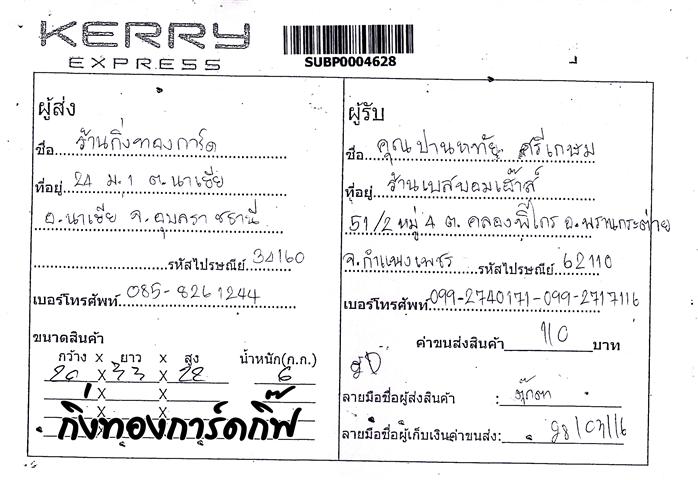 KERRY
EXPRESS
SUBP0004628
ผู้ส่ง
ชื่อ ร้านกิ่งทองการ์ด
ที่อยู่ 24 ม.1 ต.นาเยีย
อ.นาเยีย จ.อุบลราชธานี
รหัสไปรษณีย์ 34160
เบอร์โทรศัพท์ 085-8261244
ขนาดสินค้า
กว้าง X ยาว X สูง น้ำหนัก(ก.ก.)
X 33 X 22 6
X X
X X
กิ่งทองการ์ดกิ๊ฟ
ผู้รับ
ชื่อ คุณปานหทัย ศรีเกษม
ที่อยู่ ร้านเบสบอมเฮ๊าส์
51/2 หมู่ 4 ต.คลองพิไกร อ.พรานกระต่าย
จ.กำแพงเพชร รหัสไปรษณีย์ 62110
เบอร์โทรศัพท์ 099-2740171-099-2717116
ค่าขนส่งสินค้า 110 บาท
ลายมือชื่อผู้ส่งสินค้า : ตุ๊กตา
ลายมือชื่อผู้เก็บเงินค่าขนส่ง: